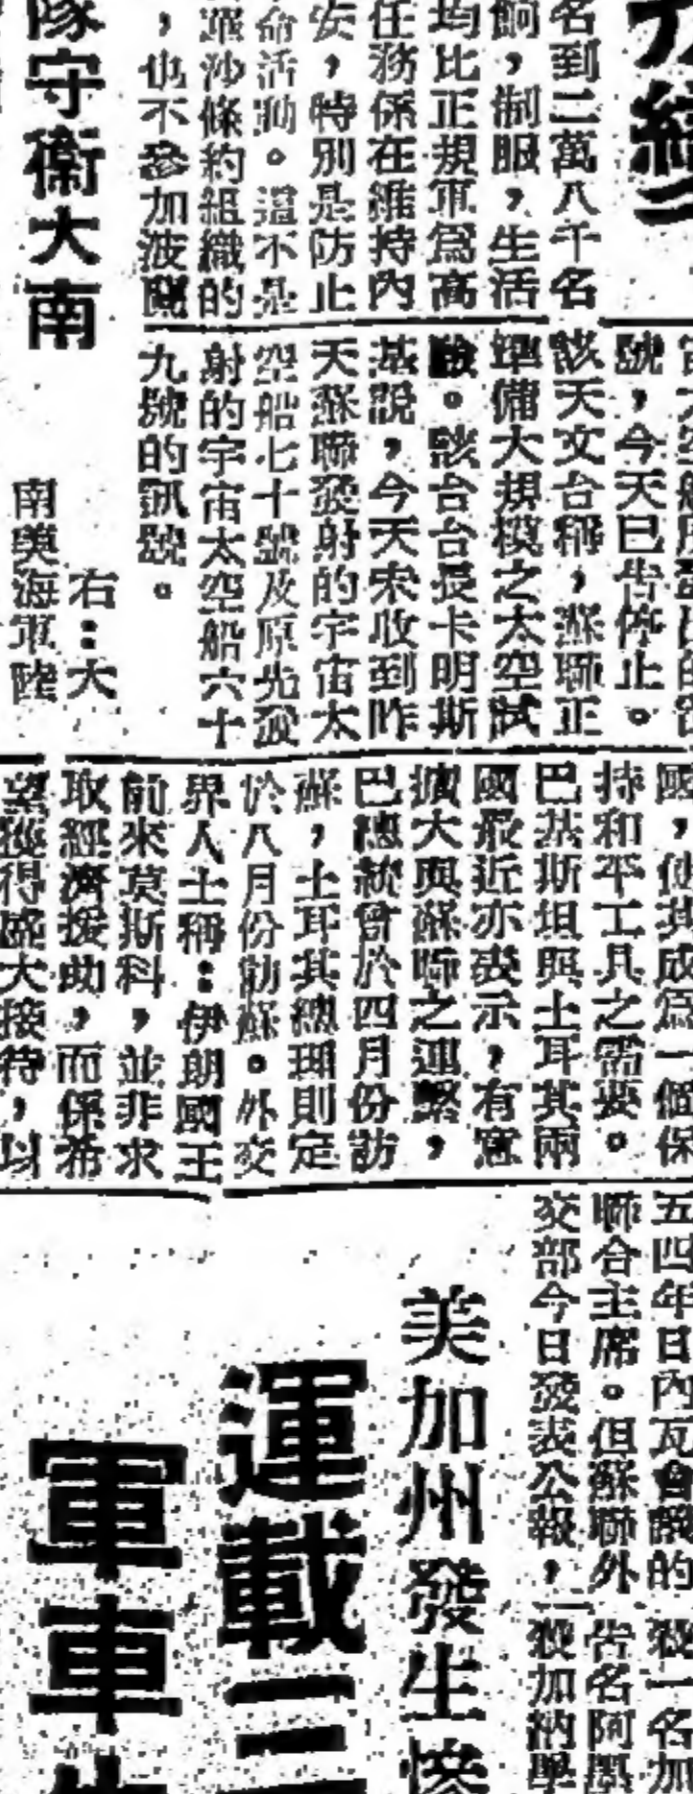 名到二萬八千名
餉，制服，生活
均比正規軍為高
任務係在維持內
安，特別是防止
命活動。這不是
華沙條約組織的
，也不參加波蘭
隊守衛大南
號，今天已告停止。
該天文台稱，蘇聯正
準備大規模之太空試
驗。該台台長卡明斯
基說，今天未收到昨
天蘇聯發射的宇宙太
空船七十號及原先發
射的宇宙太空船六十
九號的訊號。
右：大
南與海軍陸
國，使其成爲一個保
持和平工具之需要。
巴基斯坦與土耳其兩
國最近亦表示，有意
擴大與蘇聯之連繫，
巴總統曾於四月份訪
蘇，土耳其總理則定
於八月份訪蘇。外交
界人士稱：伊朗國王
前來莫斯科，並非求
取經濟援助，而係希
望獲得盛大接待，以
五四年日內瓦會議的
聯合主席。但蘇聯外
交部今日發表公報，
一名加
告名阿
加納
美加州發生慘
運載三
軍車